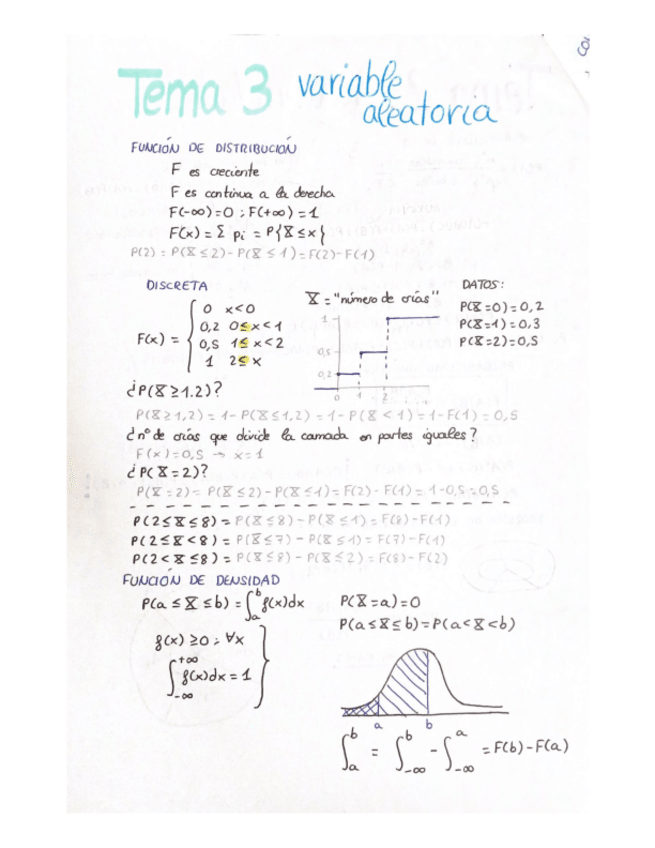 Tema 3 variable
aleatoria
FUNCIÓN DE DISTRIBUCIÓN
F es creciente
F es continua a la derecha
F(-∞)=0 ; F(+∞)=1
F(x) = Σ pi = P{X≤x}
P(2) = P(X≤2)-P(X≤1)=F(2)-F(1)
DISCRETA
X = "número de crías"
DATOS:
F(x) =
0 x<0
0,2 0≤x<1
0,5 1≤x<2
1 2≤x
1
0,5
0,2
0 1 2
P(X=0)=0,2
P(X=1)=0,3
P(X=2)=0,5
¿P(X≥1.2)?
P(X≥1,2) = 1-P(X≤1,2) = 1-P(X<1)=1-F(1)=0,5
¿nº de crías que divide la camada en partes iguales?
F(x)=0,5 → x=1
¿P(X=2)?
P(X=2)= P(X≤2)-P(X≤1)=F(2)-F(1)=1-0,5=0,5
P(2≤X≤8) = P(X≤8)-P(X≤1)=F(8)-F(1)
P(2≤X<8) = P(X≤7)-P(X≤1)=F(7)-F(1)
P(2<X≤8) = P(X≤8)-P(X≤2)=F(8)-F(2)
FUNCIÓN DE DENSIDAD
P(a≤X≤b)=∫ₐᵇ f(x)dx P(X=a)=0
P(a≤X≤b)=P(a<X<b)
f(x)≥0 ; ∀x
∫₋∞⁺∞ f(x)dx=1
a b
∫ₐᵇ = ∫₋∞ᵇ - ∫₋∞ᵃ = F(b)-F(a)